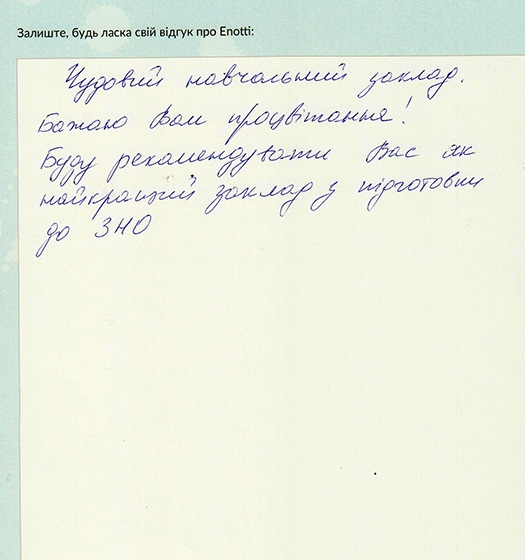 Залиште, будь ласка свій відгук про Enotti:
Чудовий навчальний заклад.
Бажаю Вам процвітання!
Буду рекомендувати Вас як
найкращий заклад у підготовки
до ЗНО